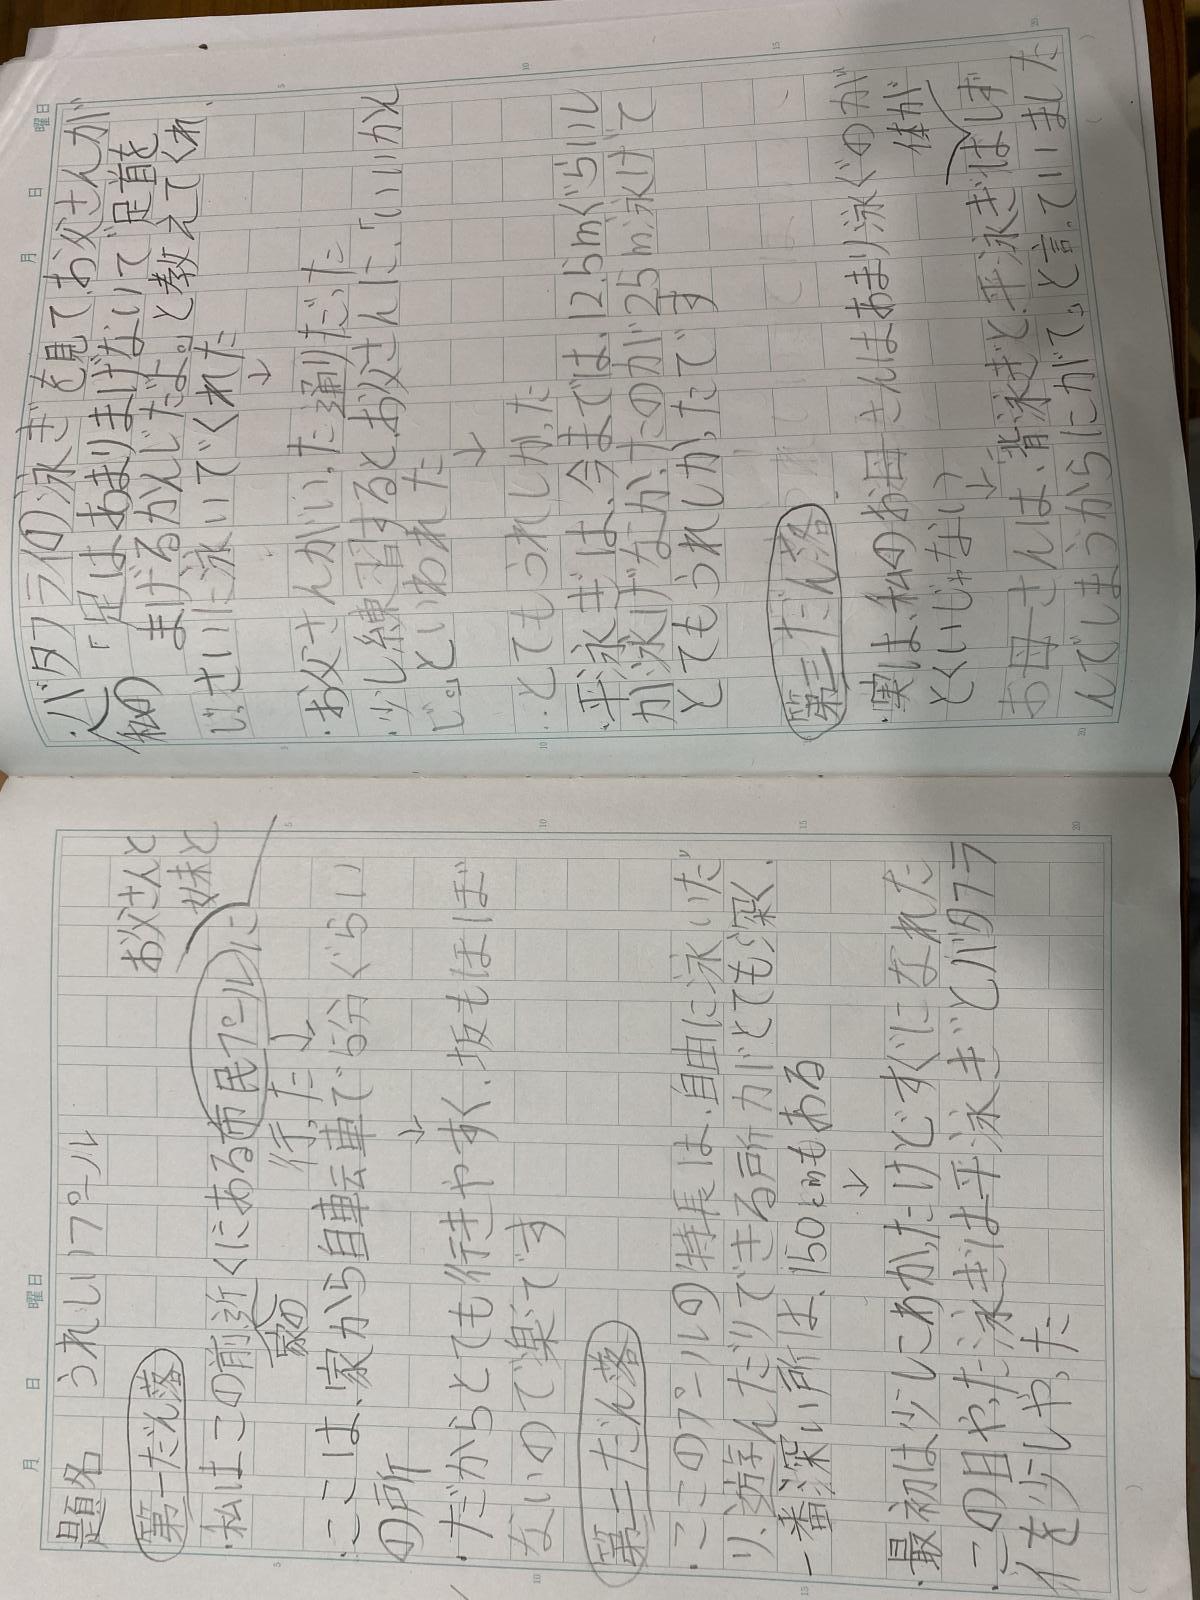 月 日 曜日
題名 うれしいプール
第一だん落
お父さんと
妹と
・私はこの前近くにある市民プールに
家の
行った
↓
・ここは、家から自転車で5分ぐらい
の所
↓
・だからとても行きやすく、坂もほぼ
ないので楽です
第二だん落
・ここのプールの特長は、自由に泳いだ
り、遊んだりできる所がとても深く、
一番深い所は、150cmもある
↓
・最初は少しこわかったけどすぐになれた
・この日やった泳ぎは平泳ぎとバタフラ
イを少しやった
月 日 曜日
・バタフライの泳ぎを見て、お父さんが
私の
「足はあまりまげないで足首を
まげるかんじだよ。」と教えてくれ、
じっさいに泳いでくれた
↓
・お父さんがいった通りだった
・少し練習すると、お父さんに、「いいかん
じ。」といわれた
↓
・とてもうれしかった
・平泳ぎは、今までは、12.5mぐらいし
か泳げなかったのが25m泳げて
とてもうれしかったです
第三だん落
・実は、私のお母さんはあまり泳ぐのが
とくいじゃない
↓
体が
お母さんは、「背泳ぎと、平泳ぎはしず
んでしまうからにがて。」と言っていました
5
10
15
20
5
10
15
20